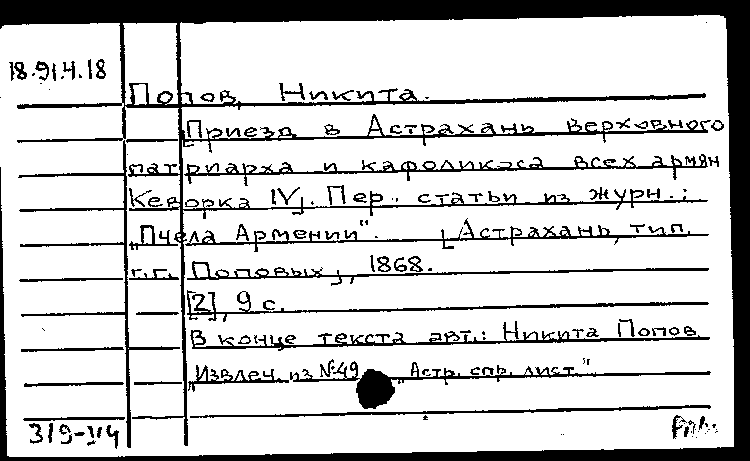 18.91.4.18
Попов, Никита.
[Приезд в Астрахань верховного
патриарха и кафоликоса всех армян
Кеворка IV]. Пер. статьи из журн.:
„Пчела Армении". [Астрахань, тип.
г.г. Поповых], 1868.
[2], 9 с.
В конце текста авт.: Никита Попов.
„Извлеч. из №49 „Астр. спр. лист.".